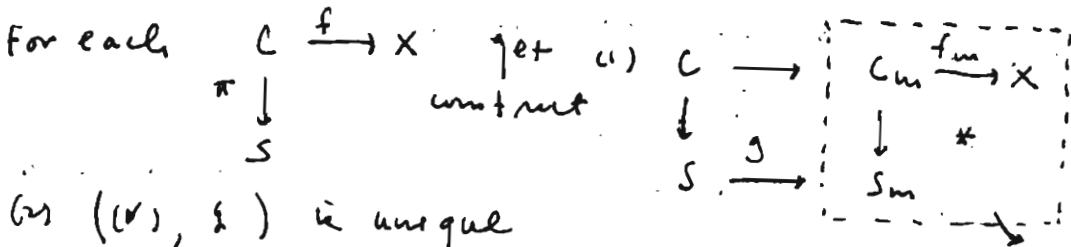 For each C f X get (1) C C_m f_m X
π construct *
S S g S_m
(2) ((*), g) is unique